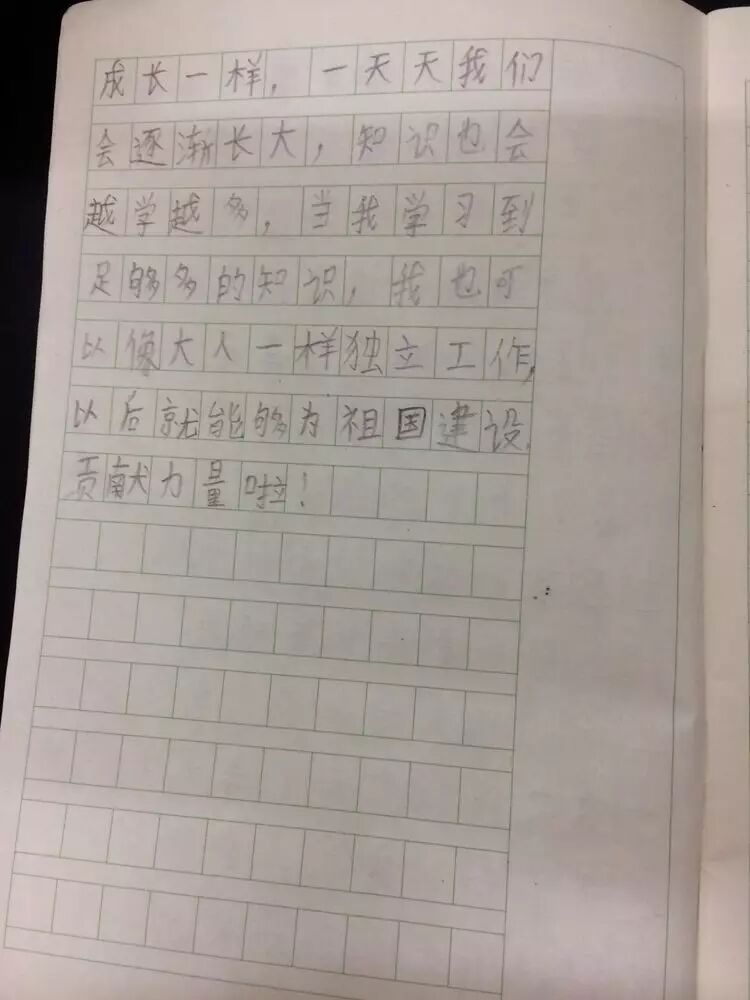 成长一样，一天天我们
会逐渐长大，知识也会
越学越多，当我学习到
足够多的知识，我也可
以像大人一样独立工作，
以后就能够为祖国建设，
贡献力量啦！